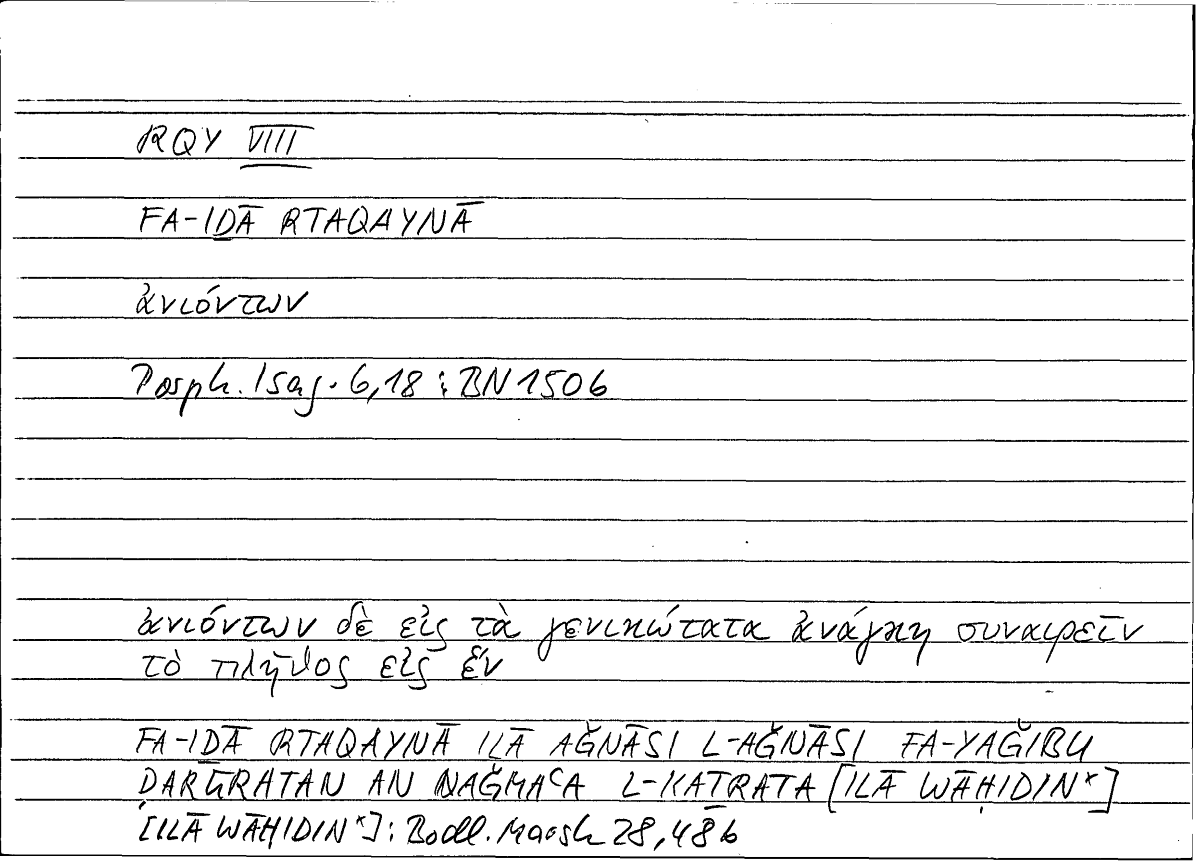 RQY VIII
FA-IḎĀ RTAQAYNĀ
ἀνιόντων
Porph. Isag. 6,18 : BN 1506
ἀνιόντων δὲ εἰς τὰ γενικώτατα ἀνάγκη συναιρεῖν
τὸ πλῆθος εἰς ἕν
FA-IḎĀ RTAQAYNĀ ILĀ AǦNĀSI L-AǦNĀSI FA-YAǦIBU
ḌARŪRATAN AN NAǦMAʿA L-KAṮRATA [ILĀ WĀḤIDIN*]
[ILĀ WĀḤIDIN*] : Bodl. Marsh 28,48b